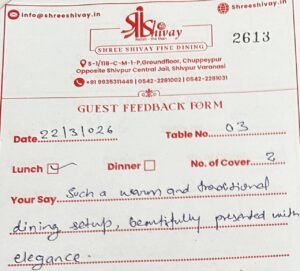 info@shreeshivay.in
shreeshivay.in
Shivay
2613
SHREE SHIVAY FINE DINING
S-1/118-C-M-1-P, Groundfloor, Chuppeypur
Opposite Shivpur Central Jail, Shivpur Varanasi
+91 9935311448 | 0542-2281002 | 0542-2281031
GUEST FEEDBACK FORM
Date 22/3/026 Table No. 03
Lunch Dinner No. of Cover 2
Your Say Such a warm and traditional
dining setup, beautifully presented with
elegance.